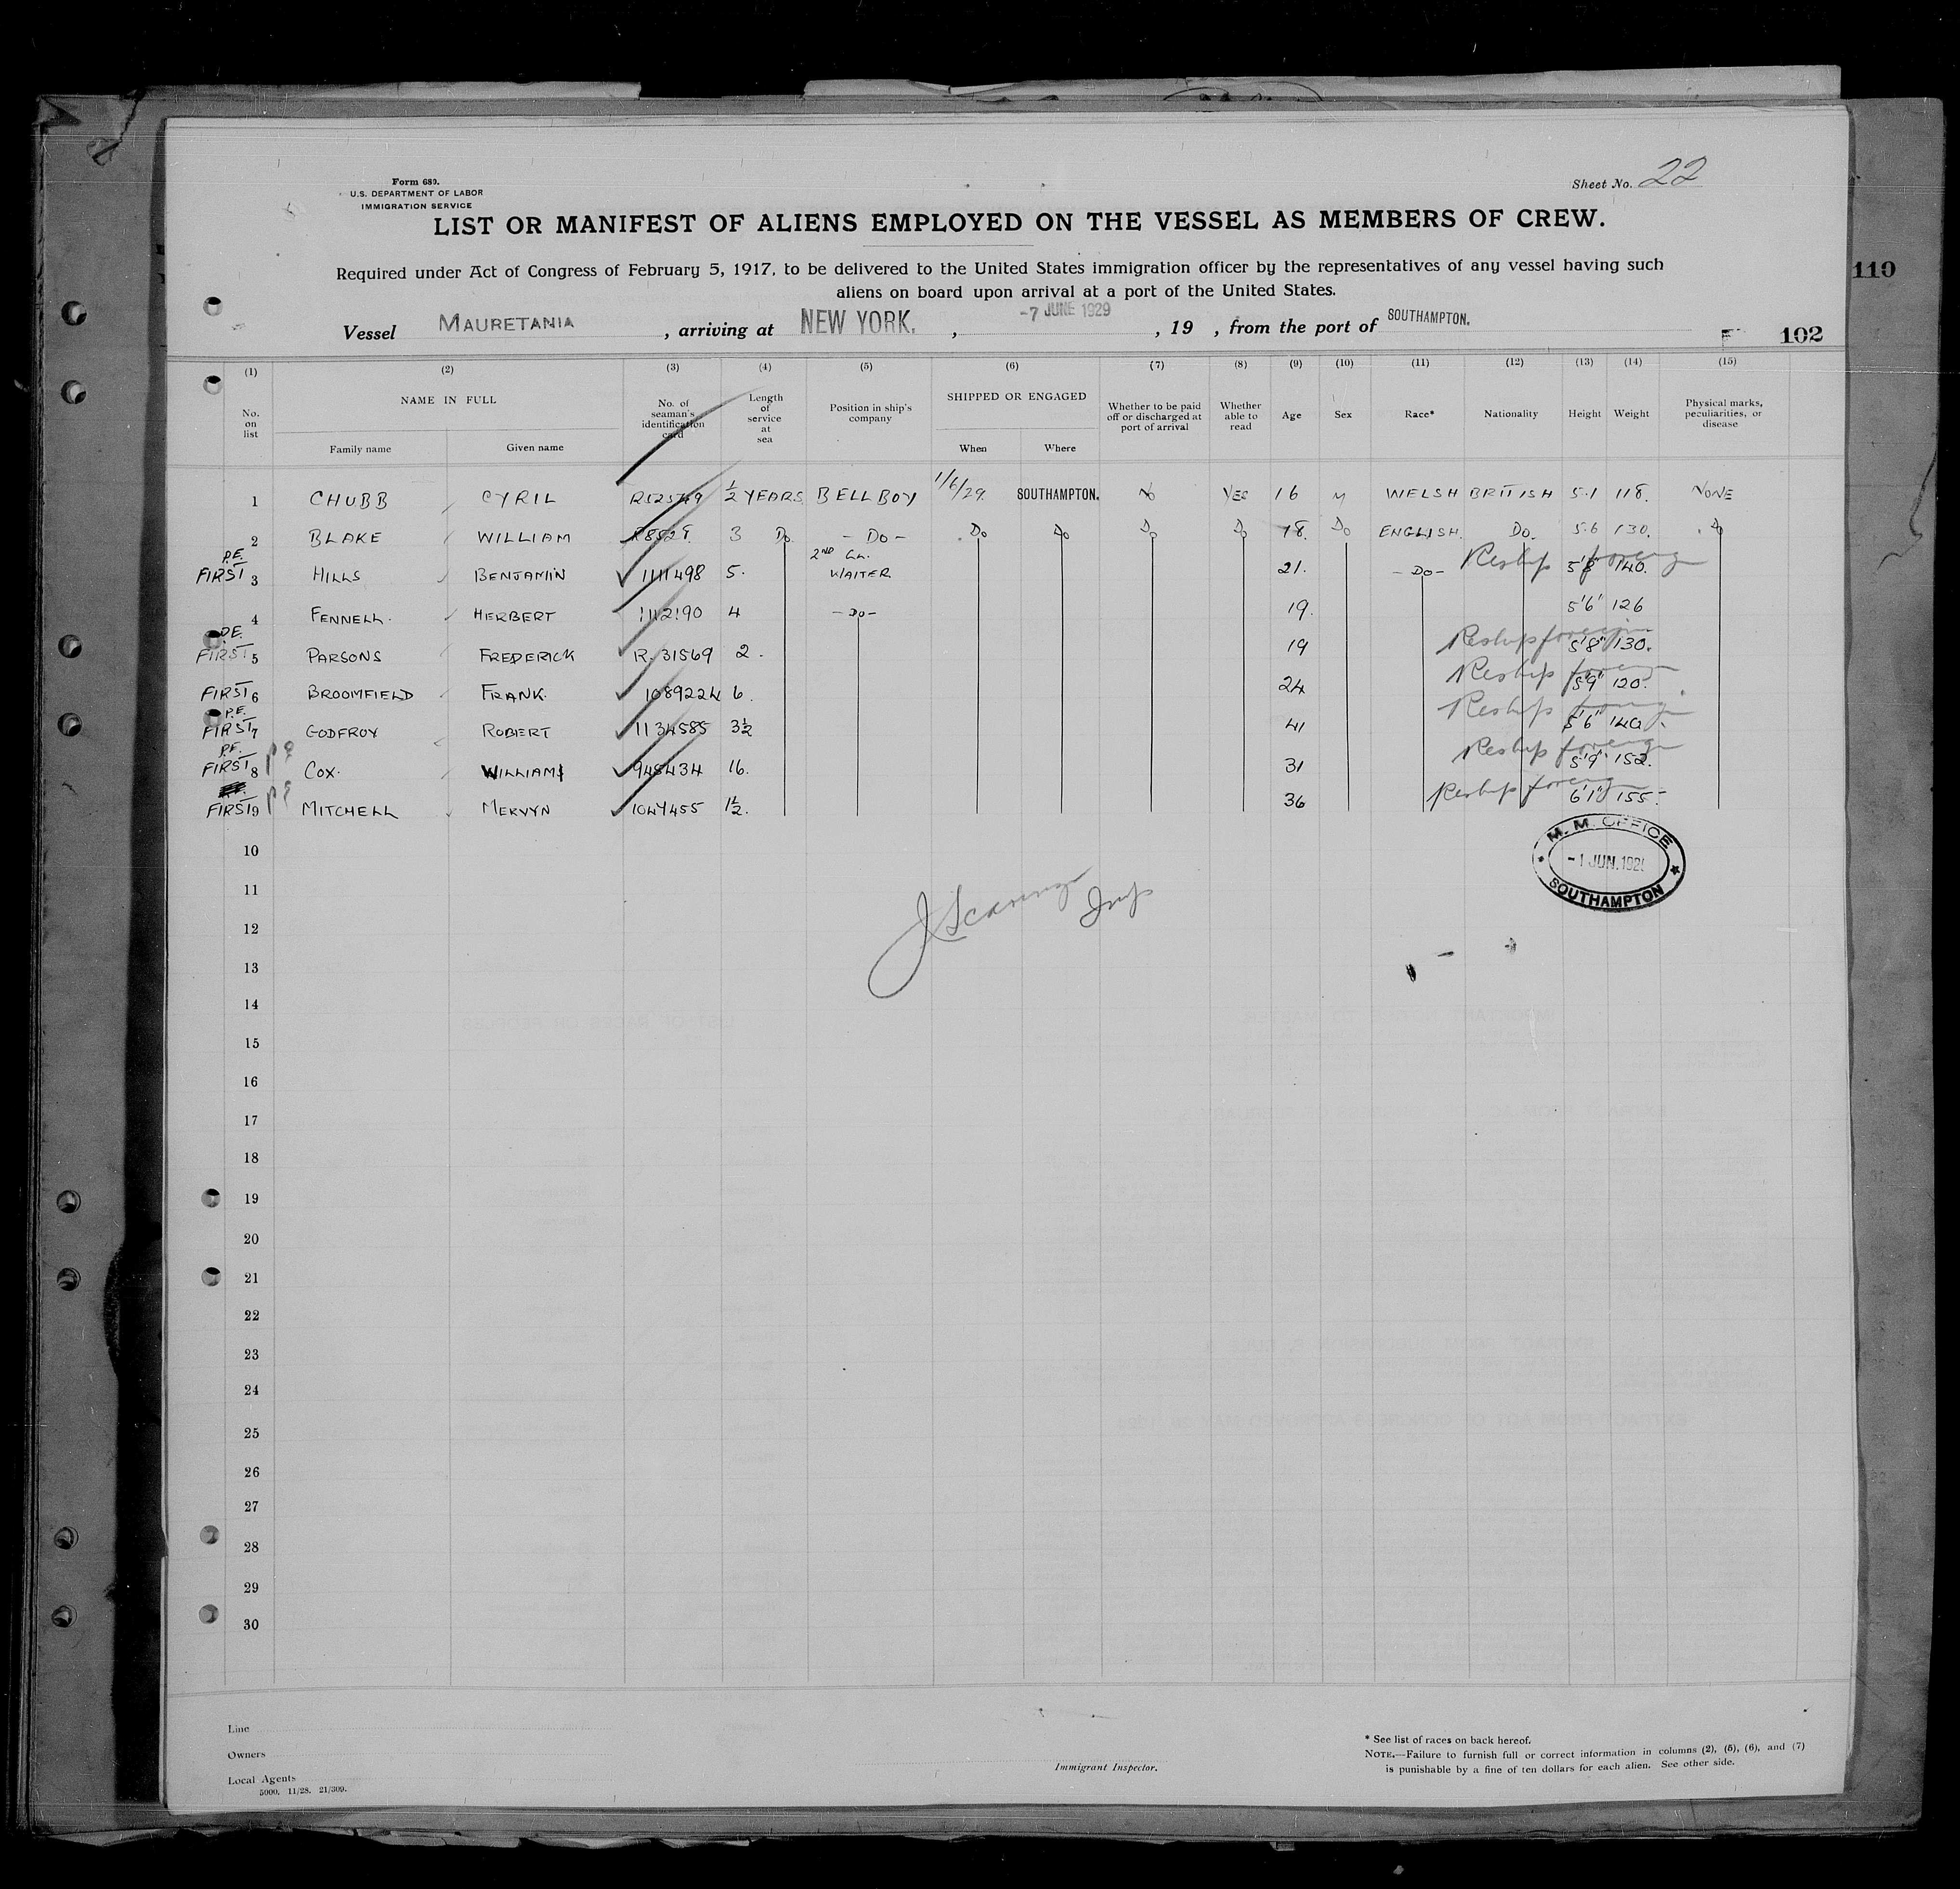 Form 689.
U.S. DEPARTMENT OF LABOR
IMMIGRATION SERVICE
Sheet No. 22
LIST OR MANIFEST OF ALIENS EMPLOYED ON THE VESSEL AS MEMBERS OF CREW.
Required under Act of Congress of February 5, 1917, to be delivered to the United States immigration officer by the representatives of any vessel having such
aliens on board upon arrival at a port of the United States.
110
Vessel MAURETANIA, arriving at NEW YORK., -7 JUNE 1929, 19 , from the port of SOUTHAMPTON.
102
(1) (2) (3) (4) (5) (6) (7) (8) (9) (10) (11) (12) (13) (14) (15)
No. on list NAME IN FULL No. of seaman's identification card Length of service at sea Position in ship's company SHIPPED OR ENGAGED Whether to be paid off or discharged at port of arrival Whether able to read Age Sex Race* Nationality Height Weight Physical marks, peculiarities, or disease
Family name Given name When Where
1 CHUBB CYRIL ½ YEARS BELL BOY 1/6/29. SOUTHAMPTON. No YES 16 M WELSH BRITISH 5.1 118. NONE
2 BLAKE WILLIAM 3 Do. - Do - Do Do Do Do 18. Do ENGLISH. Do. 5.6 130. Do
P.E. FIRST 3 HILLS BENJAMIN 1111498 5. 2ND CL. WAITER 21. - Do - Reship foreign 5'8" 140.
4 FENNELL. HERBERT 1112190 4 - Do - 19. 5'6" 126
P.E. FIRST 5 PARSONS FREDERICK R.31569 2. 19 Reship foreign 5'8" 130.
FIRST 6 BROOMFIELD FRANK. 1089224 6. 24 Reship foreign 5'9" 120.
P.E. FIRST 7 GODFROY ROBERT 1134585 3½ 41 Reship foreign 5'6" 140.
P.E. FIRST 8 COX. WILLIAM 948434 16. 31 Reship foreign 5'9" 152.
FIRST 9 MITCHELL MERVYN 1047455 1½. 36 Reship foreign 6'1" 155.
M. M. OFFICE
-1 JUN. 192
SOUTHAMPTON
10
11
12
13
14
15
16
17
18
19
20
21
22
23
24
25
26
27
28
29
30
Line
Owners
Local Agents
5000. 11/28. 21/309.
Immigrant Inspector.
* See list of races on back hereof.
NOTE.—Failure to furnish full or correct information in columns (2), (5), (6), and (7)
is punishable by a fine of ten dollars for each alien. See other side.